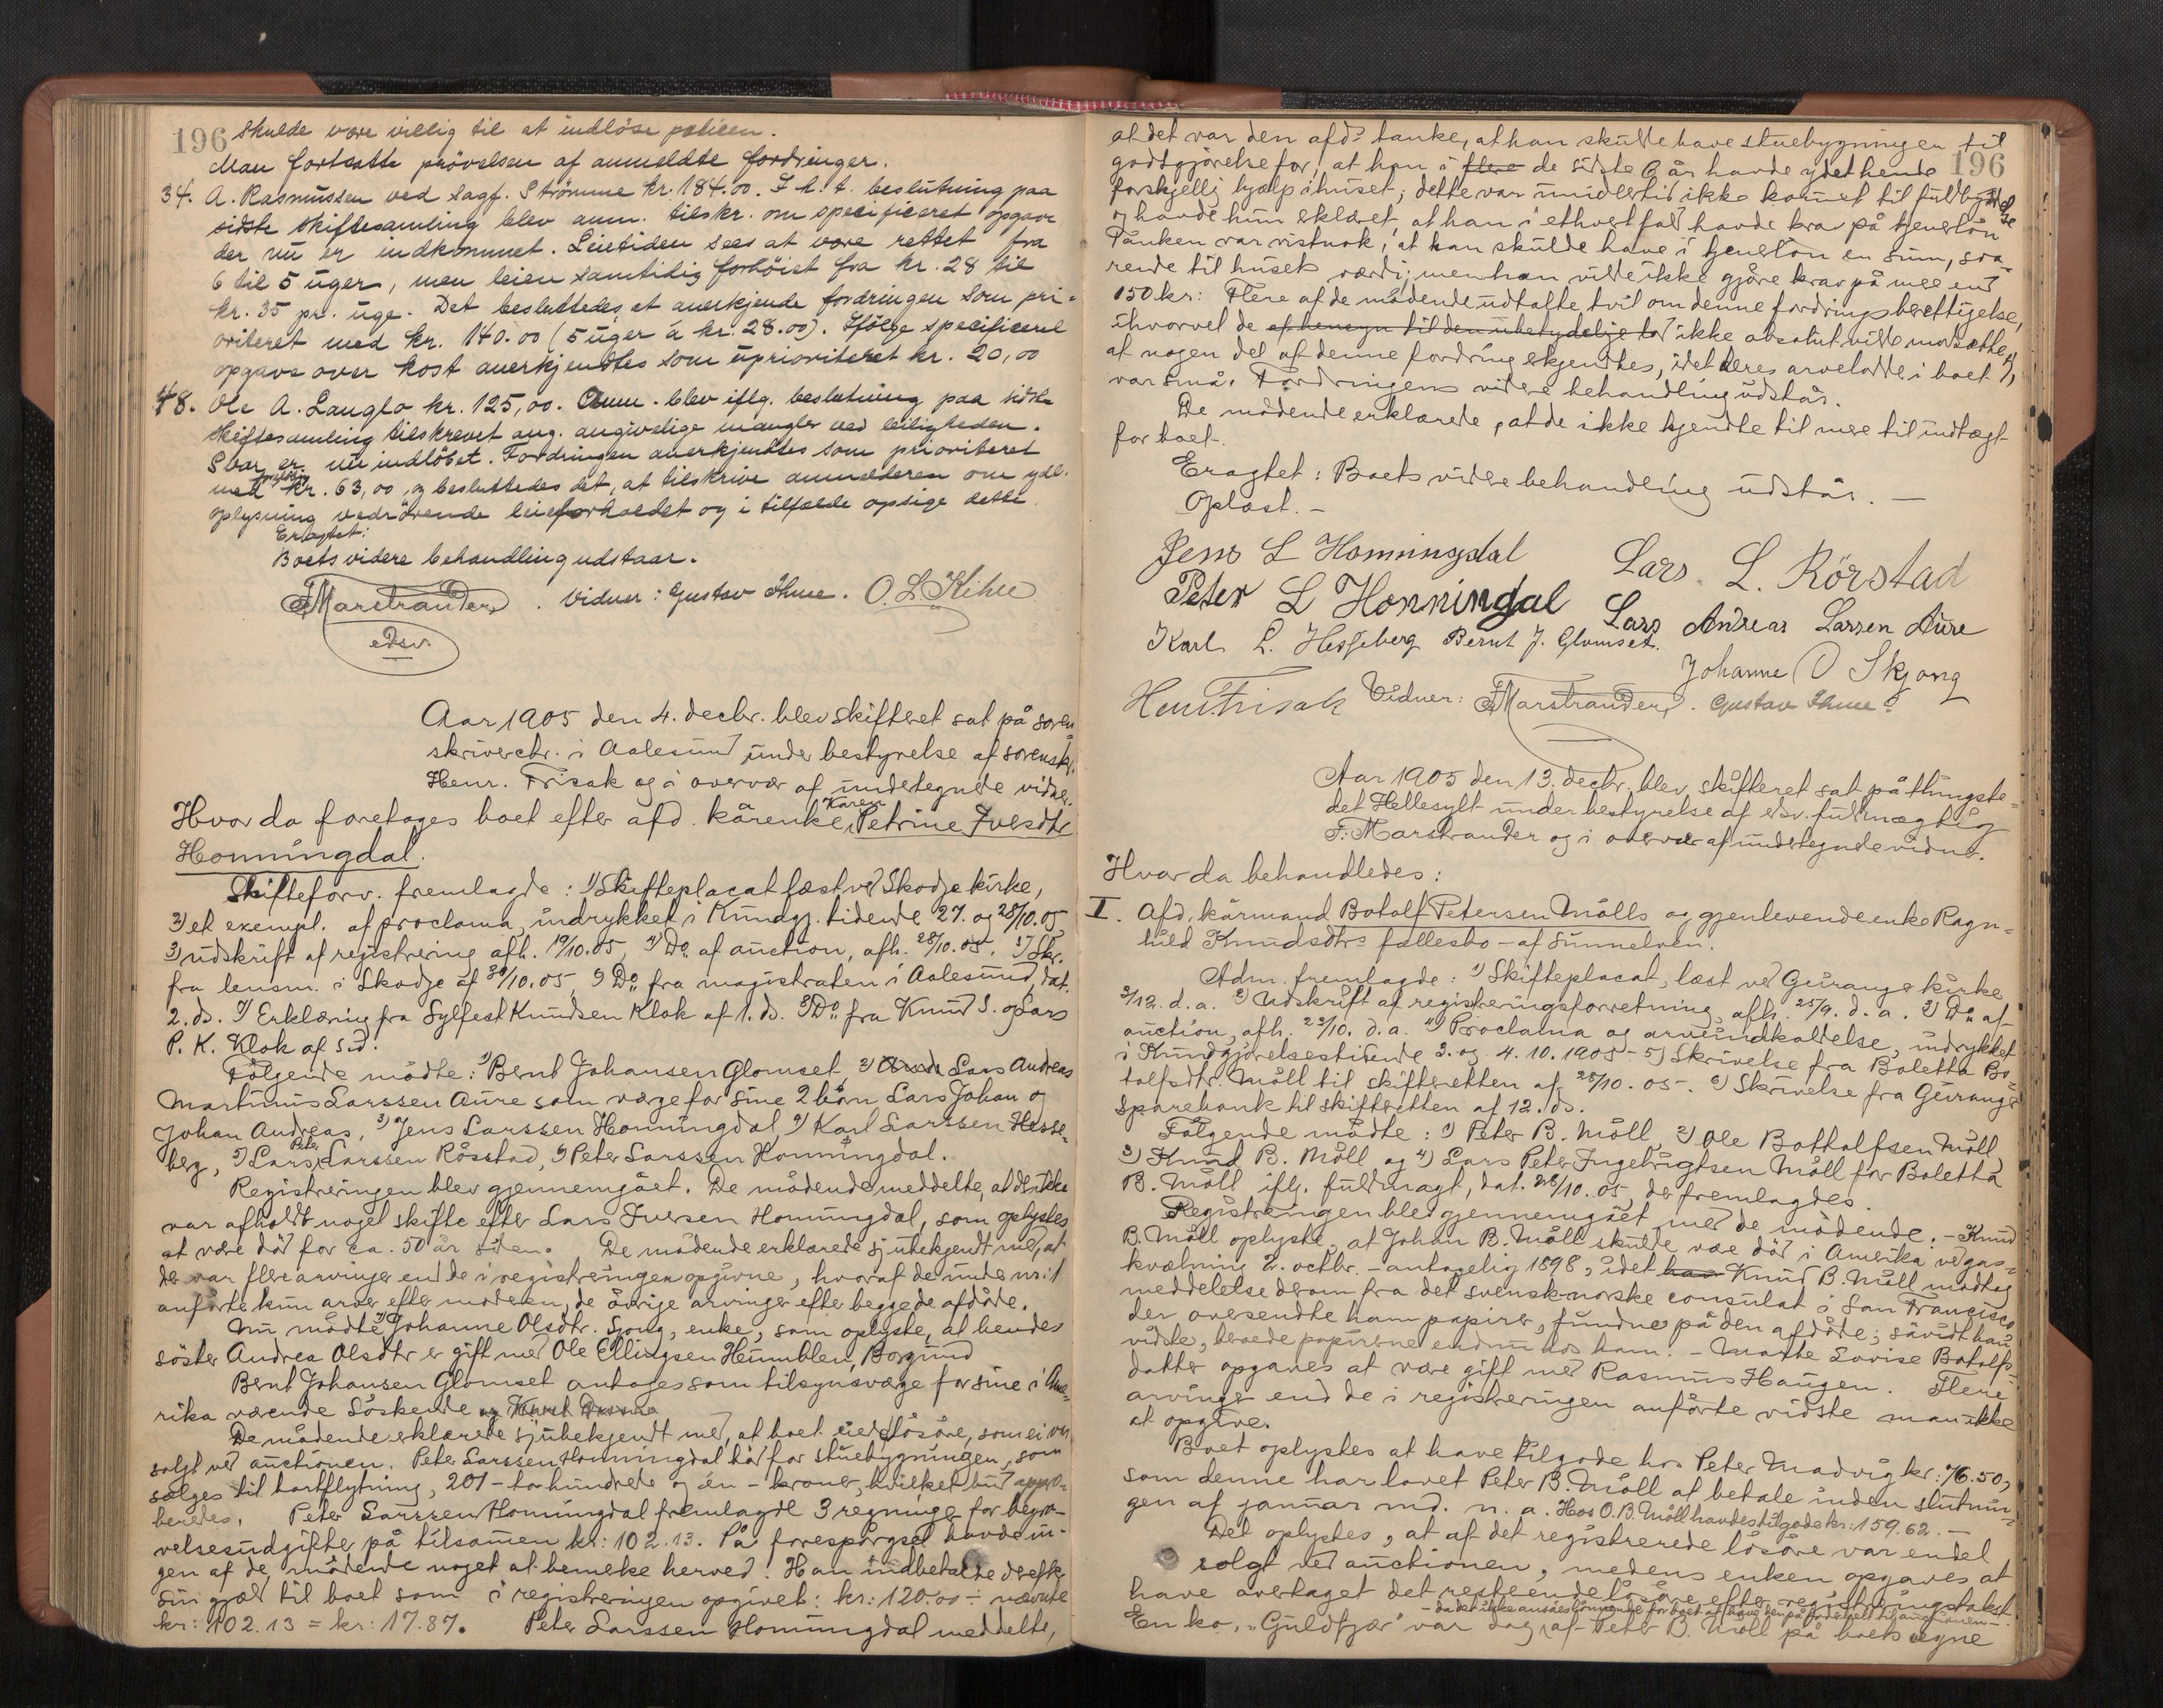 196
skulde være villig til at indløse policen.
Man fortsatte prøvelsen af anmeldte fordringer.
34. A. Rasmussen ved sagf. Strömme kr. 184.00. I h.t. beslutning paa
sidste skiftesamling blev anm. tilskr. om specificeret opgave
der nu er indkommet. Leietiden sees at være rettet fra
6 til 5 uger, men leien samtidig forhöiet fra kr. 28 til
kr. 35 pr. uge. Det besluttedes at anerkjende fordringen som pri-
oriteret med kr. 140.00 (5 uger à kr. 28.00). Ifölge specificeret
opgave over kost anerkjendtes som uprioriteret kr. 20,00
48. Ole A. Langlo kr. 125,00. Anm. blev iflg. beslutning paa sidste
skiftesamling tilskrevet ang. angivelige mangler ved leiligheden.
Svar er nu indlöbet. Fordringen anerkjendtes som prioriteret
med kr. 63,00, og besluttedes det, at tilskrive anmelderen om ydl.
oplysning vedrörende leieforholdet og i tilfælde opsige dette.
Eragtet:
Boets videre behandling udstaar.
F Marstrander. Vidner: Gustav Thue. O. L. Kihle
edsv.
Aar 1905 den 4. decbr. blev skifteret sat på soren-
skriverctr. i Aalesund under bestyrelse af sorenskr.
Henr. Frisak og i overvær af undertegnede vidner.
Hvor da foretoges boet efter afd. kårenke Karen Petrine Iversdtr
Honningdal.
Skifteforv. fremlagde: 1) Skifteplacat læst ved Skodje kirke,
2) et exempl. af proclama, indrykket i Kundgj. tidende 27. og 28/10.05,
3) udskrift af registrering afh. 19/10.05, 4) Do af auction, afh. 28/10.05. 5) Skr.
fra lensm. i Skodje af 30/10.05, 6) Do fra magistraten i Aalesund, dat.
2. ds. 7) Erklæring fra Sylfest Knudsen Klok af 1. ds. 8) Do fra Knud S. og Lars
P. K. Klok af s.d.
Følgende mødte: 1) Bernt Johansen Glomset 2) Lars Andreas
Martinus Larssen Aure som værge for sine 2 børn Lars Johan og
Johan Andreas, 3) Jens Larssen Honningdal, 4) Karl Larssen Hesse-
berg, 5) Lars Peter Larssen Rösstad, 6) Peter Larssen Honningdal.
Registreringen blev gjennemgået. De mødende meddelte, at der ikke
var afholdt noget skifte efter Lars Iversen Honningdal, som oplystes
at være död for ca. 50 år siden. De mødende erklærede sj ubekjendt med, at
der var flere arvinger end de i registreringen opgivne, hvoraf de under nr. 1
anförte kun arver efter moderen, de øvrige arvinger efter begge de afdøde.
Nu mødte 7) Johanne Olsdtr. Sjong, enke, som oplyste, at hendes
söster Andrea Olsdtr er gift med Ole Ellingsen Humblen, Borgund
Bernt Johansen Glomset antages som tilsynsværge for sine i Ame-
rika værende söskende
De mødende erklærede sj ubekjendt med, at boet eiede løsøre, som ei var
solgt ved auctionen. Peter Larssen Honningdal bød for stuebygningen, som
sælges til bortflytning, 201 - tohundrede og én - kroner, hvilket bud appro-
beredes. Peter Larssen Honningdal fremlagde 3 regninger for begra-
velsesudgifter på tilsammen kr: 102.13. På forespörgsel havde in-
gen af de mødende noget at bemerke herved. Han indbetalte derefter
sin gjæld til boet som i registreringen opgivet: kr: 120.00 ÷ nævnte
kr: 102.13 = kr: 17.87. Peter Larssen Honningdal meddelte,
196
at det var den afd's tanke, at han skulde have stuebygningen til
godtgjørelse for, at han i flere de sidste 6 år havde ydet hende
forskjellig hjælp i huset; dette var imidlertid ikke kommet til fuldbyrdelse
og havde hun erklæret, at han i ethvert fald havde krav på tjenerløn
Tanken var vistnok, at han skulde have i tjenerløn en sum, sva-
rende til husets værdi; men han vilde ikke gjøre krav på mere end
150 kr: Flere af de mødende udtalte tvil om denne fordrings berettigelse,
ihvorvel de af hensyn til den ubetydelige lod ikke absolut vilde modsætte sig,
at nogen del af denne fordring erkjendtes, idet deres arvelodde i boet
var små. Fordringens videre behandling udstår.
De mødende erklærede, at de ikke kjendte til mere til indtægt
for boet.
Eragtet: Boets videre behandling udstår. —
Oplæst. -
Jens L Honningdal Lars. L. Rörstad
Peter L Honningdal Lars Andreas Larsen Aure
Karl L. Hesseberg Bernt J. Glomset.
Johanne O Skjong
Henr. Frisak Vidner: F Marstrander. Gustav Thue.
Aar 1905 den 13. decbr. blev skifteret sat på thingste-
det Hellesylt under bestyrelse af edsv. fuldmægtig
F. Marstrander og i overvær af undertegnede vidner.
Hvor da behandledes:
I. Afd. kårmand Botolf Petersen Mölls og gjenlevende enke Ragn-
hild Knudsdtrs fællesbo - af Sunnelven.
Adm. fremlagde: 1) Skifteplacat, læst ved Geiranger kirke
3/12. d.a. 2) Udskrift af registreringsforretning, afh. 25/9. d.a. 3) Do af
auction, afh. 23/10. d.a. 4) Proclama og arveindkaldelse, indrykket
i Kundgjørelsestidende 3. og 4. 10. 1905 - 5) Skrivelse fra Boletta Bo-
tolfsdtr. Möll til skifteretten af 28/10.05 -. 6) Skrivelse fra Geiranger
sparebank til skifteretten af 12. ds.
Følgende mødte: 1) Peter B. Möll, 2) Ole Bottolfsen Möll,
3) Knud B. Möll og 4) Lars Peter Ingebrigtsen Möll for Boletta
B. Möll iflg. fuldmagt, dat. 28/10.05, der fremlagdes.
Registreringen blev gjennemgået med de mødende. - Knud
B. Möll oplyste, at Johan B. Möll skulde være död i Amerika ved gas-
kvælning 2. octbr. - antagelig 1898, idet han Knud B. Möll modtog
meddelelse derom fra det svensk-norske consulat i San Francisco,
der oversendte ham papirer, fundne på den afdøde; såvidt han
vidste, beroede papirerne endnu hos ham. - Marthe Lovise Botolfs-
datter opgaves at være gift med Rasmus Haugen. Flere
arvinger end de i registreringen anförte vidste man ikke
at opgive.
Boet oplystes at have tilgode hos Peter Madvig kr: 76.50,
som denne har lovet Peter B. Möll at betale inden slutnin-
gen af januar md. n. a. Hos O. B. Möll havdes tilgode kr: 159.62. —
Det oplystes, at af det registrerede løsøre var endel
solgt ved auctionen, medens enken opgaves at
have overtaget det resterende løsøre efter registreringstakst.
En ko, „Guldfjær" var dog af Peter B. Möll på boets vegne